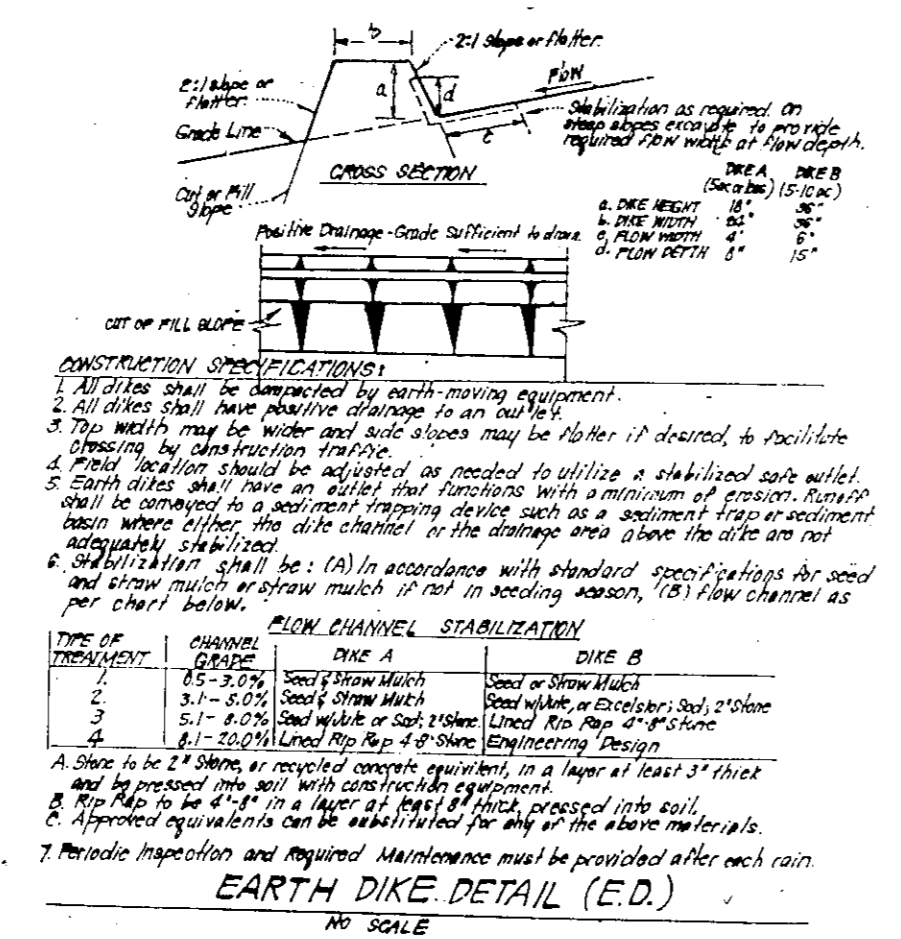 b
2:1 Slope or flatter.
2:1 slope or
flatter.
a
d
Flow
Grade Line
c
Stabilization as required. On
steep slopes excavate to provide
required flow width at flow depth.
Cut or Fill
Slope
CROSS SECTION
DIKE A DIKE B
(5ac or less) (5-10 ac)
a. DIKE HEIGHT 18" 36"
b. DIKE WIDTH 24" 36"
c. FLOW WIDTH 4' 6'
d. FLOW DEPTH 8" 15"
Positive Drainage-Grade Sufficient to drain.
CUT OF FILL SLOPE
CONSTRUCTION SPECIFICATIONS:
1. All dikes shall be compacted by earth-moving equipment.
2. All dikes shall have positive drainage to an outlet.
3. Top width may be wider and side slopes may be flatter if desired, to facilitate
crossing by construction traffic.
4. Field location should be adjusted as needed to utilize a stabilized safe outlet.
5. Earth dikes shall have an outlet that functions with a minimum of erosion. Runoff
shall be conveyed to a sediment trapping device such as a sediment trap or sediment
basin where either the dike channel or the drainage area above the dike are not
adequately stabilized.
6. Stabilization shall be: (A) In accordance with standard specifications for seed
and straw mulch or straw mulch if not in seeding season, (B) flow channel as
per chart below.
FLOW CHANNEL STABILIZATION
TYPE OF TREATMENT CHANNEL GRADE DIKE A DIKE B
1. 0.5-3.0% Seed & Straw Mulch Seed or Straw Mulch
2. 3.1-5.0% Seed & Straw Mulch Seed w/Jute, or Excelsior; Sod; 2" Stone
3 5.1-8.0% Seed w/Jute or Sod; 2" Stone Lined Rip Rap 4"-8" Stone
4 8.1-20.0% Lined Rip Rap 4-8" Stone Engineering Design
A. Stone to be 2" Stone, or recycled concrete equivilent, in a layer at least 3" thick
and be pressed into soil with construction equipment.
B. Rip Rap to be 4"-8" in a layer at least 8" thick, pressed into soil.
C. Approved equivalents can be substituted for any of the above materials.
7. Periodic Inspection and Required Maintenance must be provided after each rain.
EARTH DIKE DETAIL (E.D.)
NO SCALE